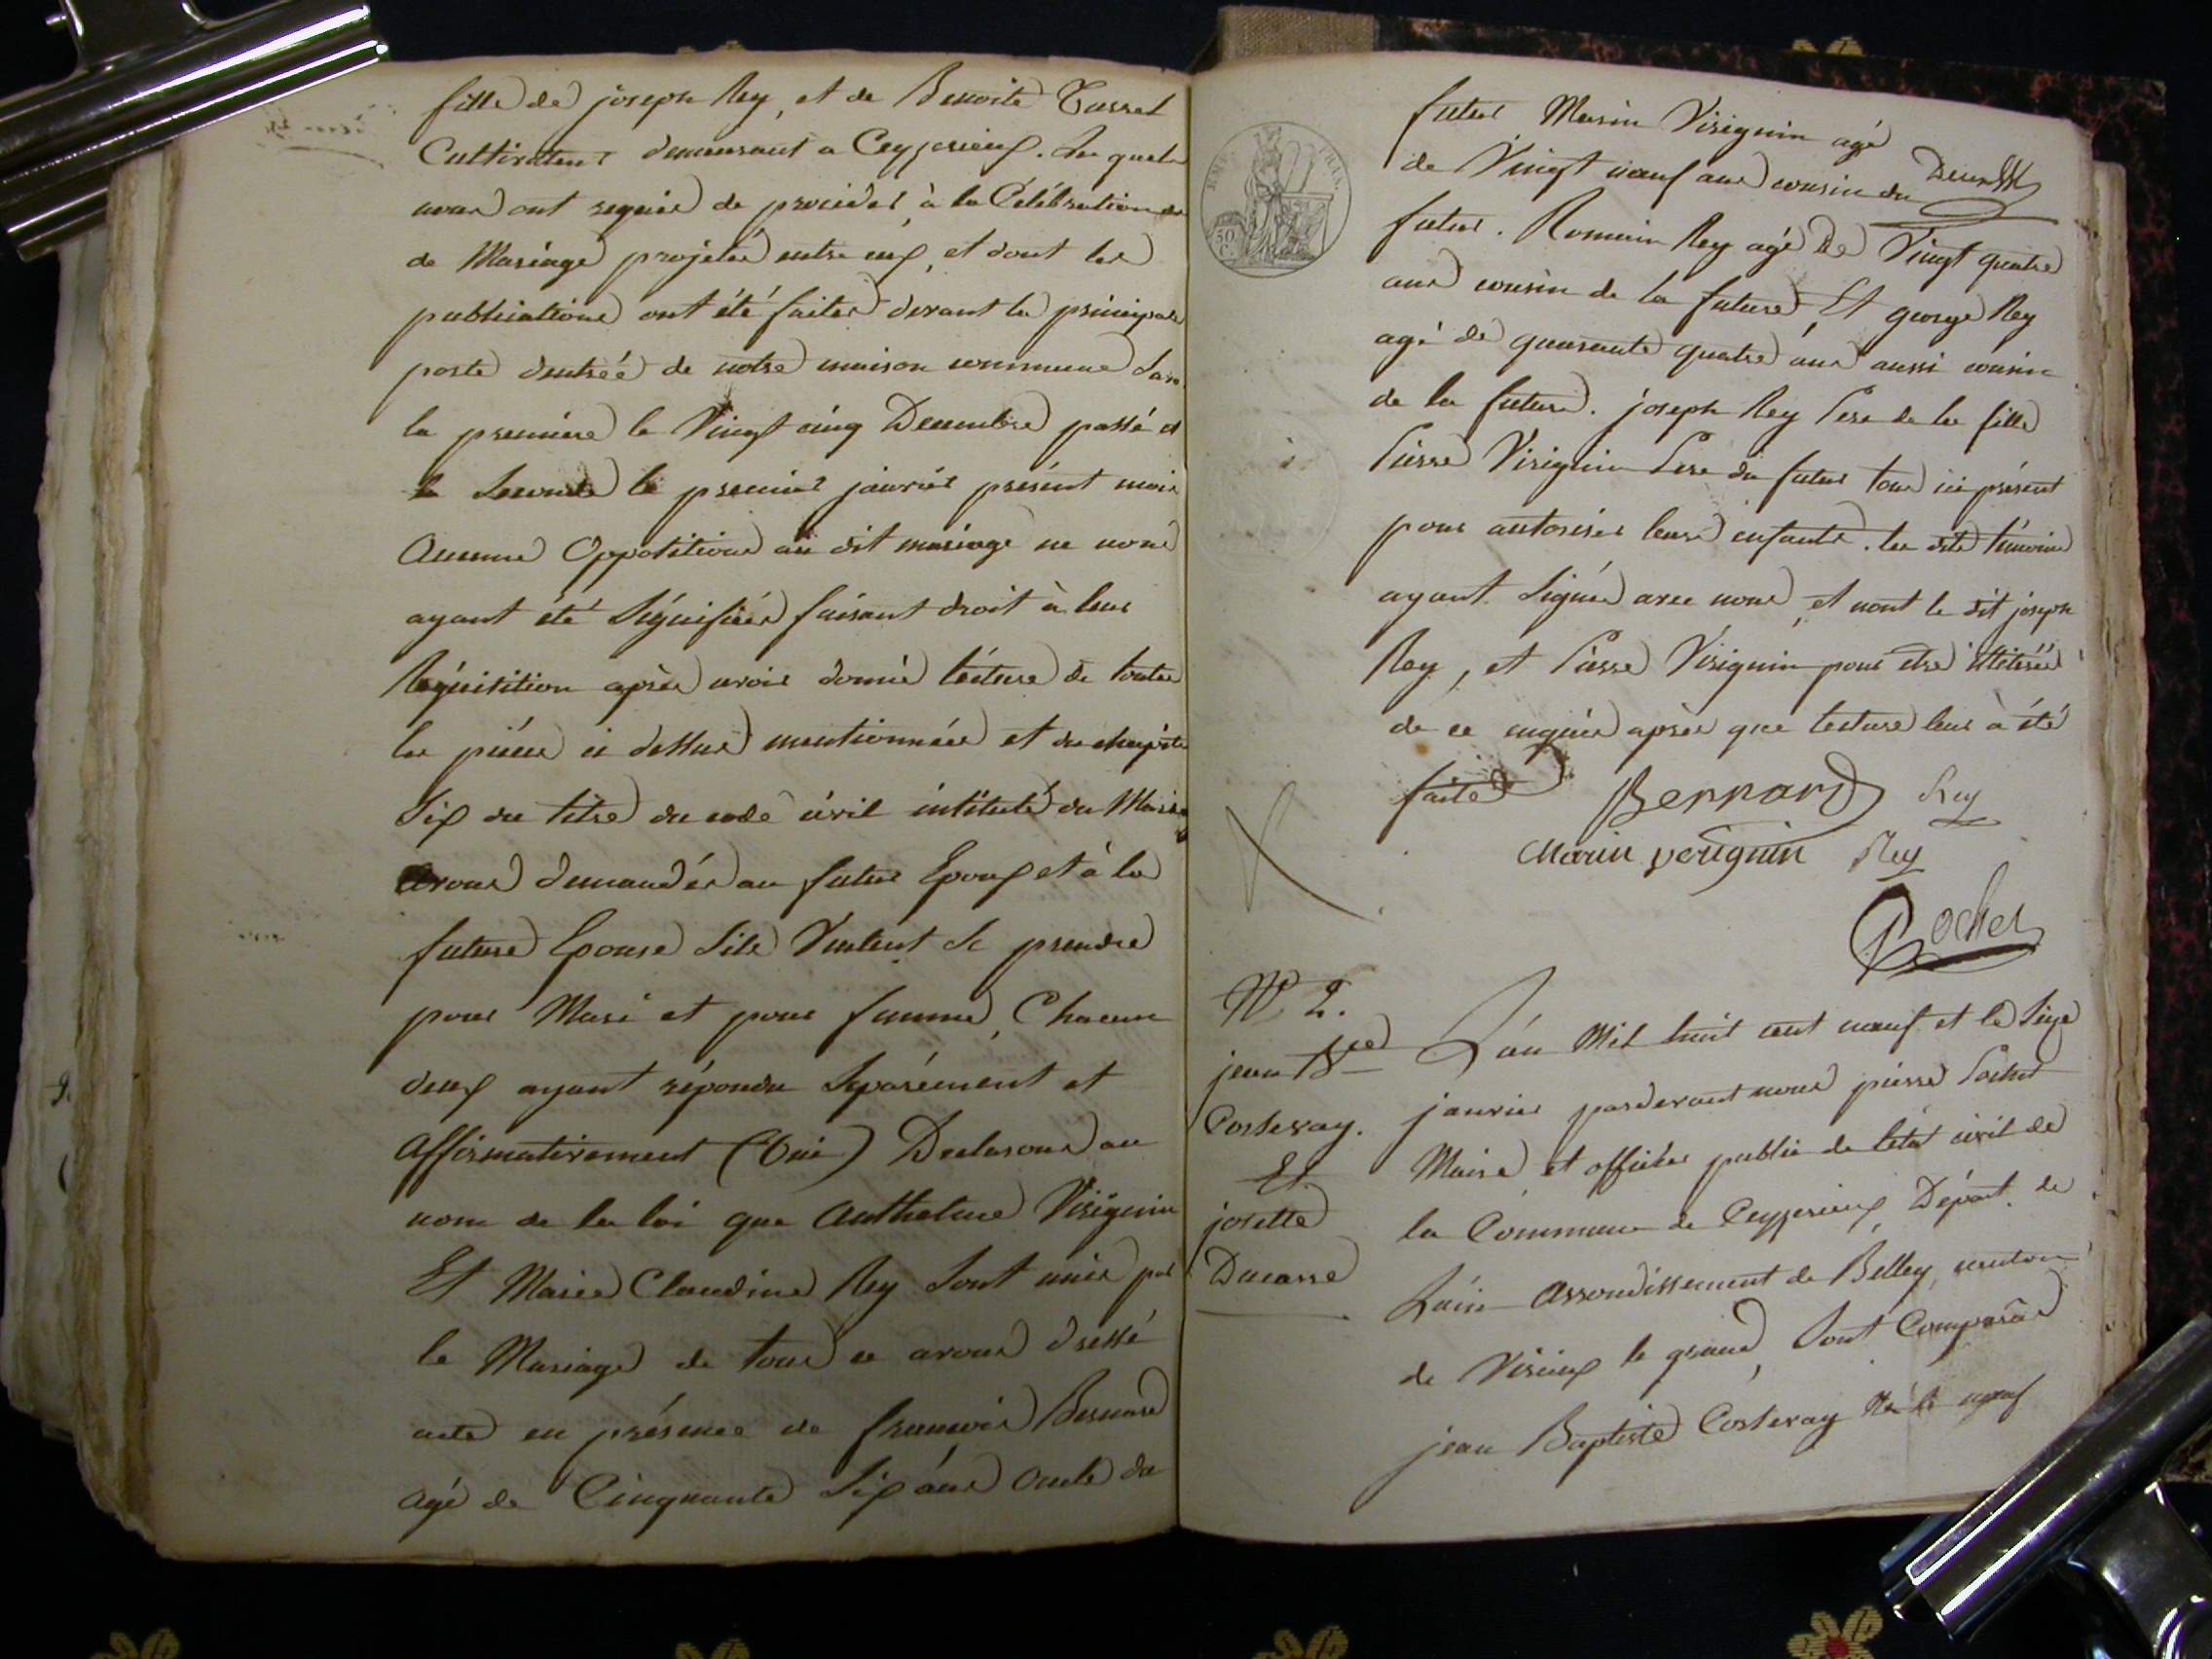 fille de joseph Rey, et de Benoite Tasset
Cultivateurs demeurant a Ceyzerieux. Les quels
nous ont requier de proceder à la Célébration du
de Mariage projetée entre eux, et dont les
publications ont été faites devant la principale
porte dentreé de notre maison commune
la premiere le Vingt cinq Decembre passé et
la Seconde le premier janvier présent mois
Aucune Oppositions au dit mariage ne nous
ayant été Signifiées faisant droit à leur
Réquisition après avoir donné lécture de toutes
les piéces ci dessus mentionnées et du chapitre
Six du titre du code civil intitulé du Mariage
Avons demandés au futur Epoux et à la
future Epouse Sils Veulent Se prendre
pour Mari et pour femme, Chacun
deux ayant répondu Separément et
Affirmativement (Oui) Declarons au
nom de la loi que Anthelme Virignin
Et Marie Claudine Rey Sont unis par
le Mariage de tous ce avons dressé
acte en présence de francois Bernard
agé de Cinquante Six ans Oncle du
EMP. FRAN.
50 C.
futur Marin Virignin agé
de Vingt nœuf ans cousin du
futur. Romain Rey agé De Vingt quatre
ans cousin de la future, Et george Rey
agé de quarante quatre ans aussi cousin
de la future. joseph Rey Pere de la fille
Pierre Virignin Pere du futur tous ici présent
pour autoriser leurs enfants. les dits témoins
ayant Signés avec nous, et nont le dit joseph
Rey, et Pierre Virignin pour être illiterés
de ce enquis après que lecture leur à été
faite
Bernard Rey
Marin verignin Rey
Pochet
N° 2.
jean Bte
Costeray.
Et
josette
Ducarre
Lán Mil huit cent nœuf et le Seize
janvier pardevant nous pierre Pochet
Maire et officier public de létat civil de
la Commune de Ceyzerieux, Départ. de
Láin Arrondissement de Belley, canton
de Virieux le grand, Sont Comparus
jean Baptiste Costeray Né le nœuf